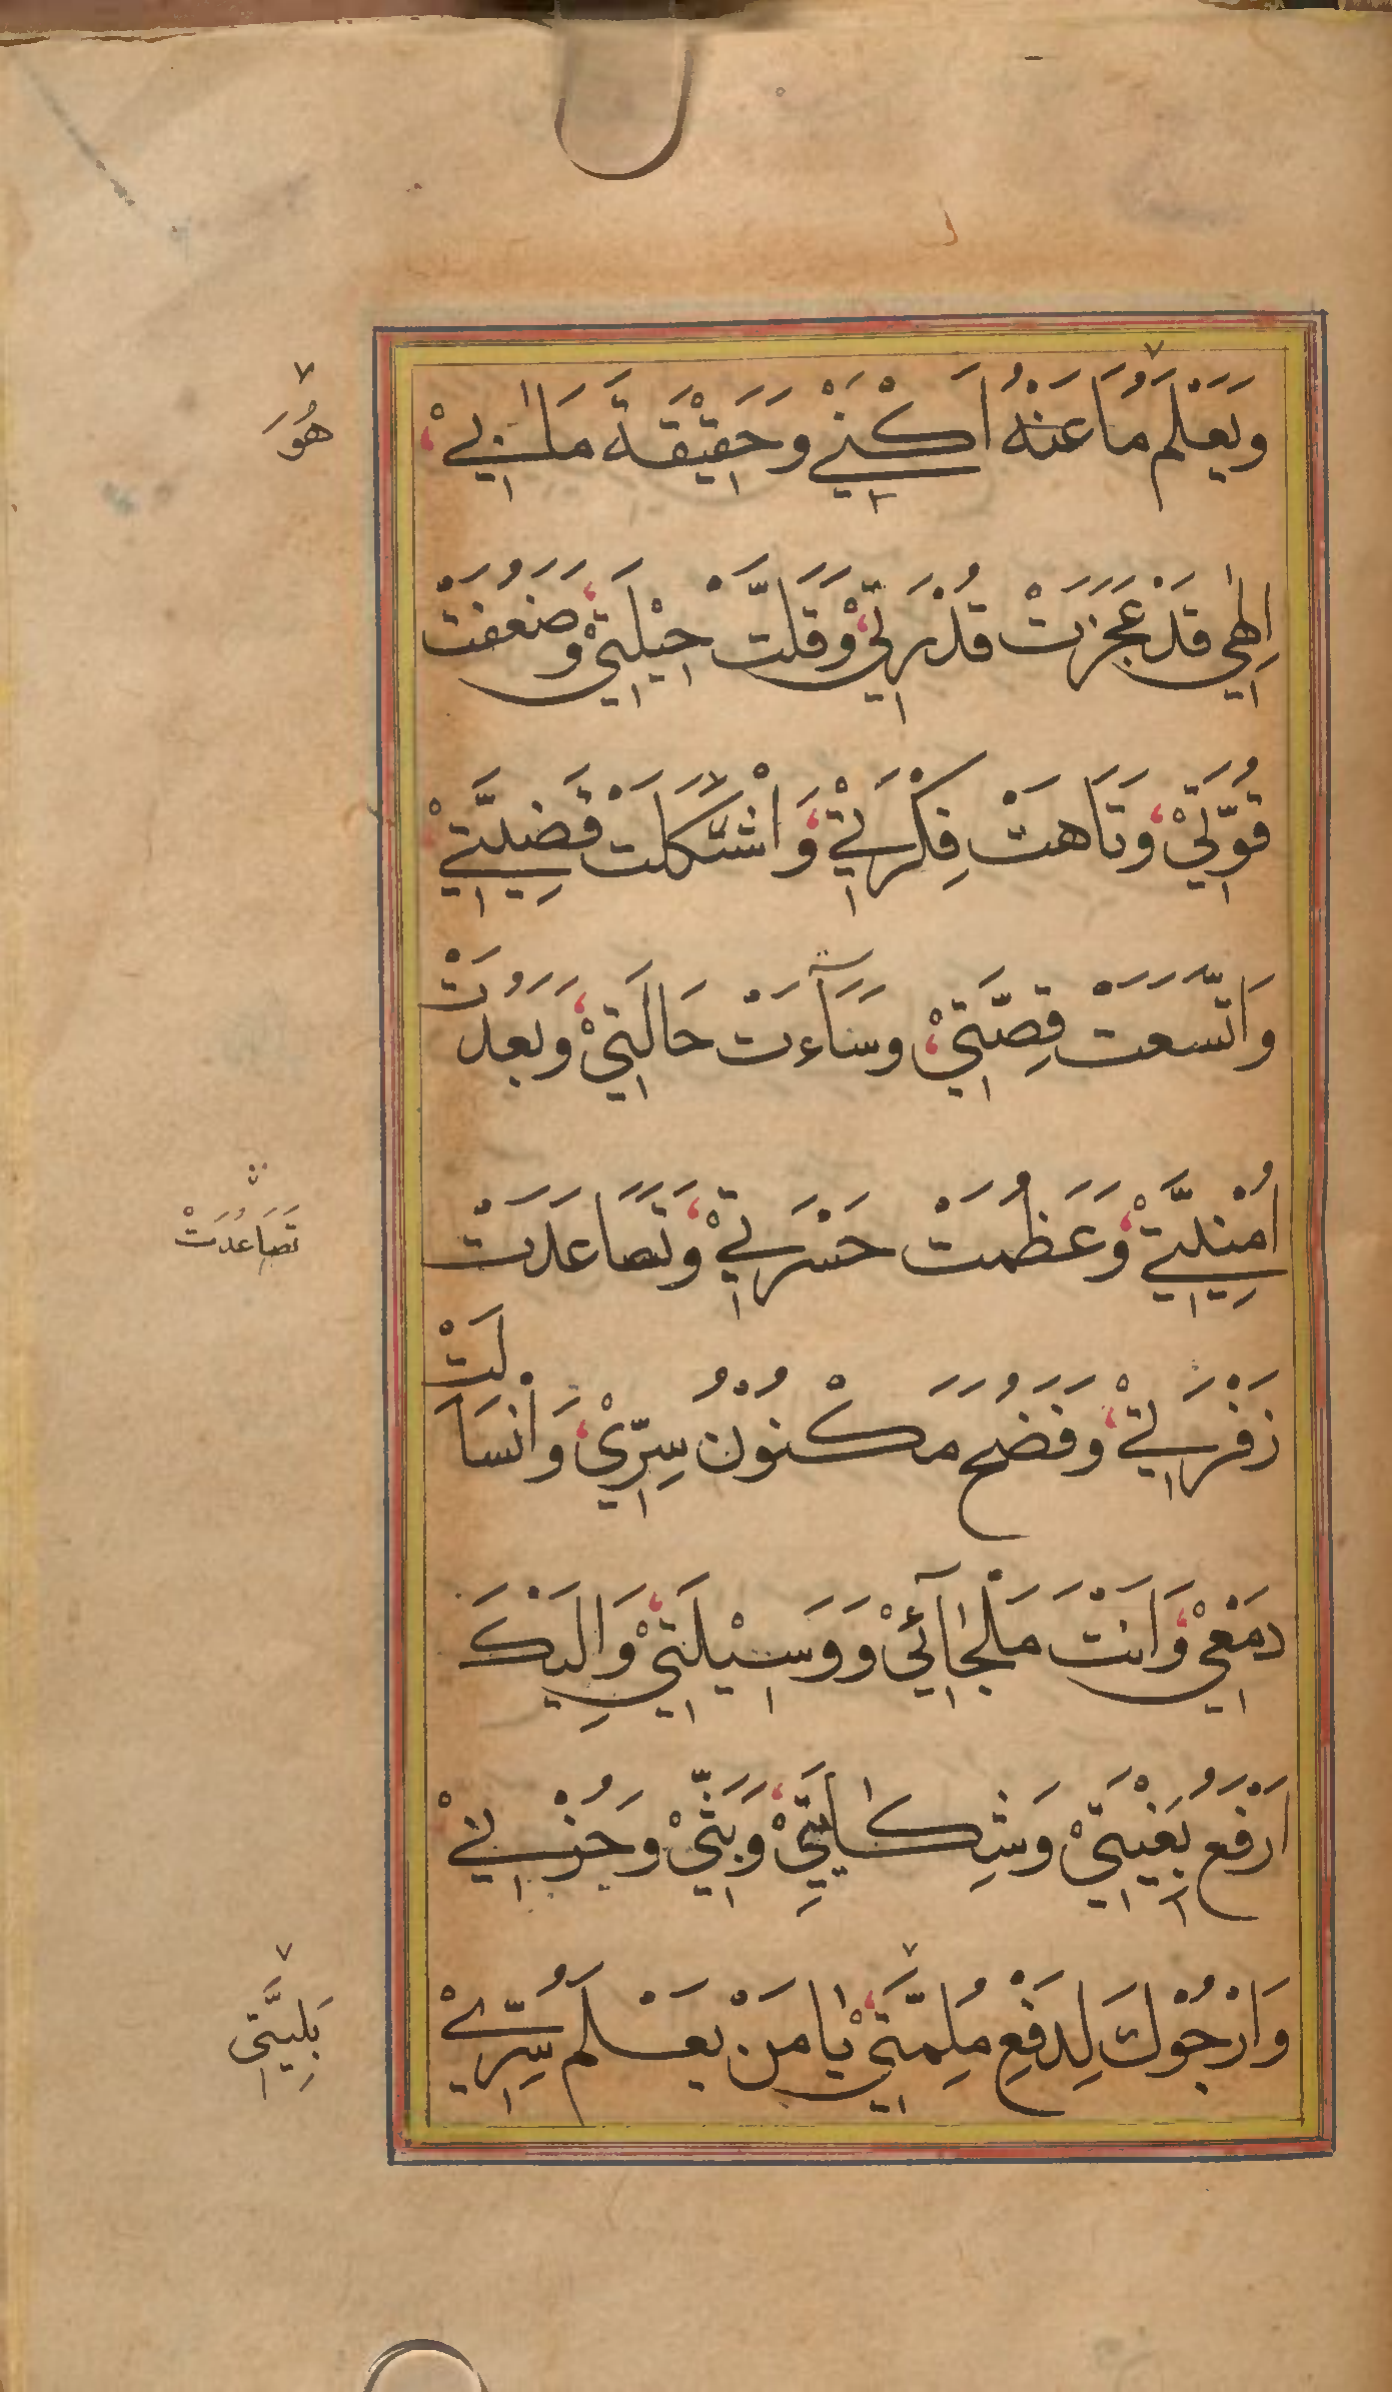 وَيَعْلَمُ مَا عَنْهُ اَكْنِيْ وَحَقِيْقَةَ مَا بِيْ
هُوَ
اِلٰهِي قَدْ عَجَزَتْ قُدْرَتِيْ وَقَلَّتْ حِيْلَتِيْ وَضَعُفَتْ
قُوَّتِيْ وَتَاهَتْ فِكْرَتِيْ وَاشْتَكَلَتْ قَضِيَّتِيْ
وَاتَّسَعَتْ قِصَّتِيْ وَسَآءَتْ حَالَتِيْ وَبَعُدَتْ
اُمْنِيَّتِيْ وَعَظُمَتْ حَسْرَتِيْ وَتَصَاعَدَتْ
تَصَاعُدَتْ
زَفْرَتِيْ وَفَضَحَ مَكْنُوْنُ سِرِّيْ وَانْسَالَتْ
دَمْعِيْ وَاَنْتَ مَلْجَآئِيْ وَوَسِيْلَتِيْ وَاِلَيْكَ
اَرْفَعُ بُغْيَتِيْ وَشِكَايَتِيْ وَبَثِّيْ وَحُزْنِيْ
وَاَرْجُوْكَ لِدَفْعِ مُلِمَّتِيْ يَا مَنْ يَعْلَمُ سِرِّيْ
بَلِيَّتِي